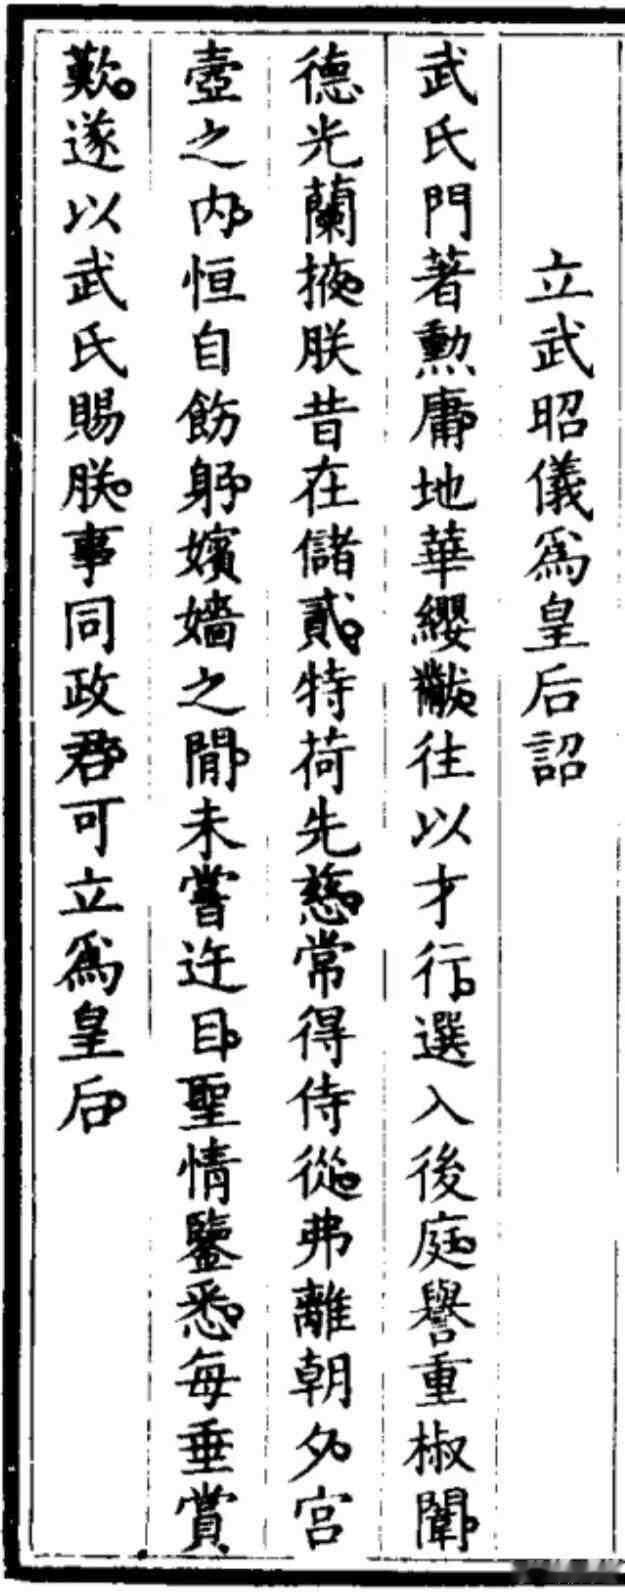 立武昭儀爲皇后詔
武氏門著勲庸。地華纓黻。往以才行。選入後庭。譽重椒闈。
德光蘭掖。朕昔在儲貳。特荷先慈。常得侍從。弗離朝夕。宮
壼之内。恒自飭躬。嬪嬙之閒。未嘗迕目。聖情鑒悉。每垂賞
歎。遂以武氏賜朕。事同政君。可立爲皇后。